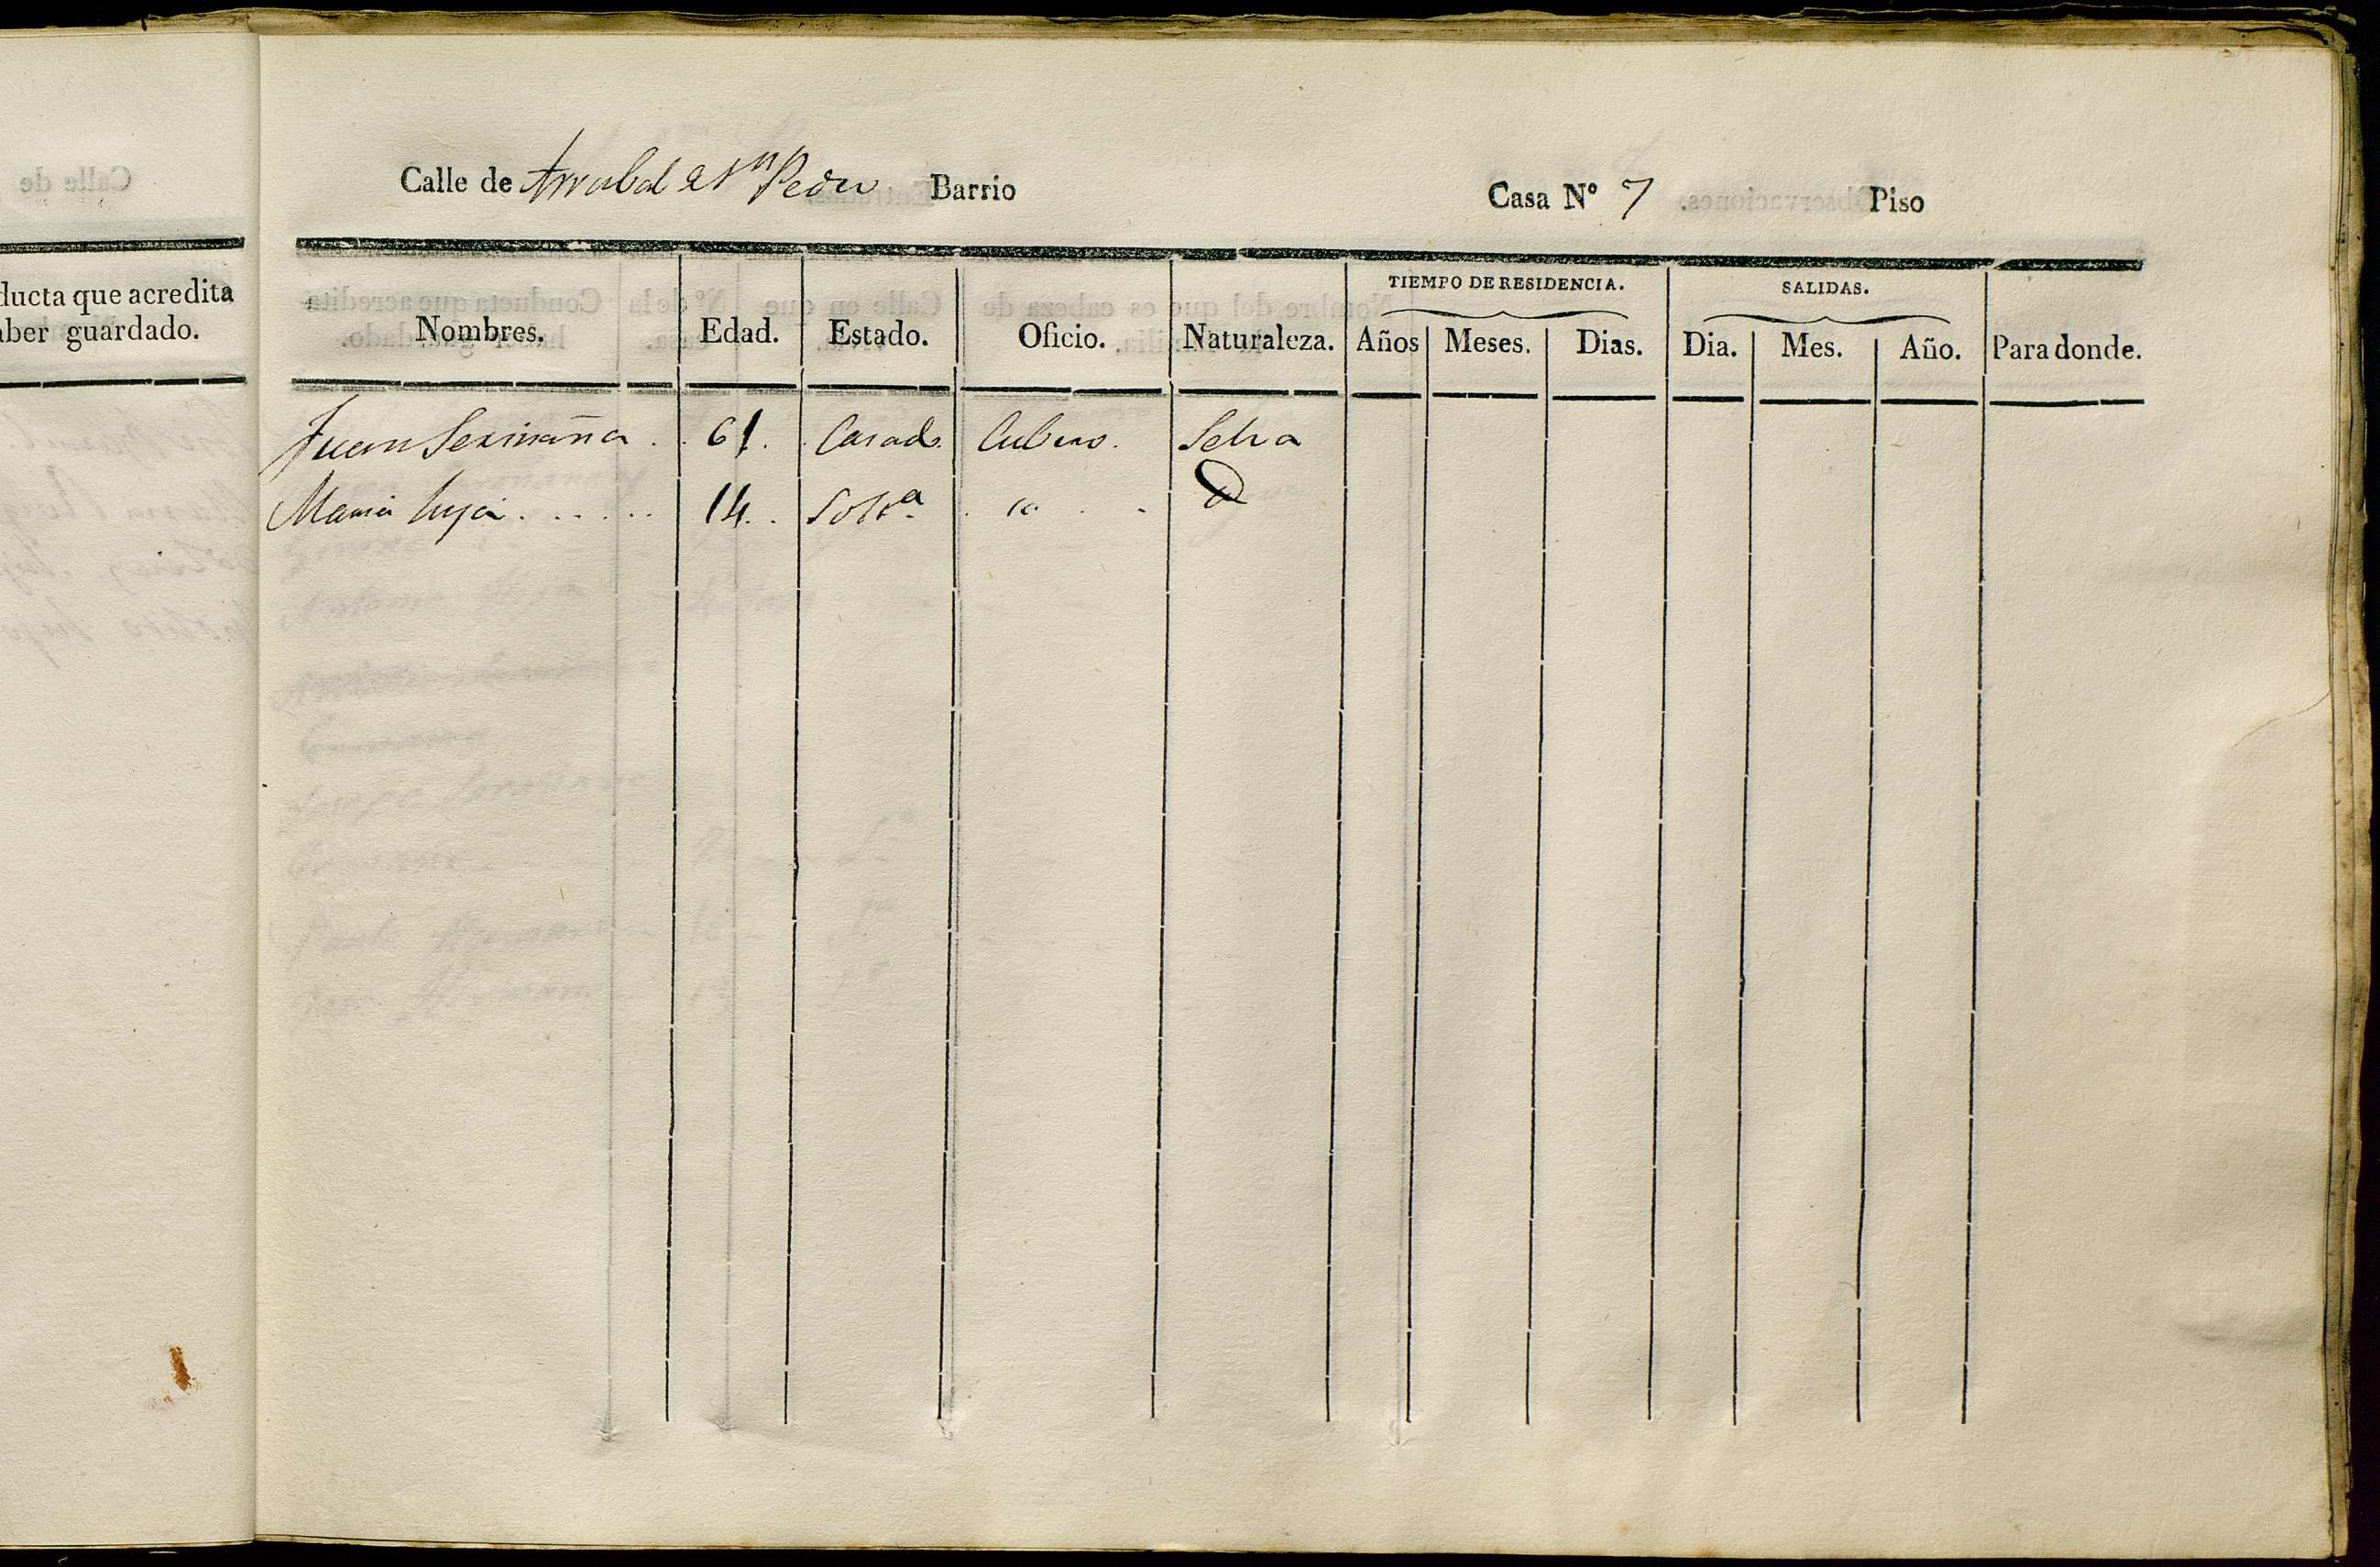 ducta que acredita
aber guardado.
Calle de Arrabal de Sn Pedro Barrio Casa Nº 7 Piso
TIEMPO DE RESIDENCIA. SALIDAS.
Nombres. Edad. Estado. Oficio. Naturaleza. Años Meses. Dias. Dia. Mes. Año. Para donde.
Juan . . 61. Casado. Cubero. Selva
Maria hija . . . . . . 14. . Soltª . " . . D